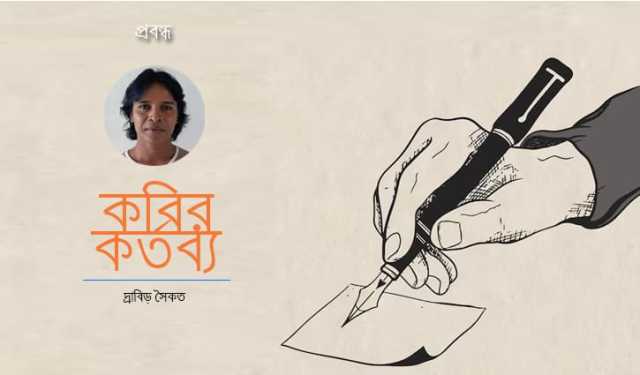 প্রবন্ধ
কবির
কর্তব্য
দ্রাবিড় সৈকত